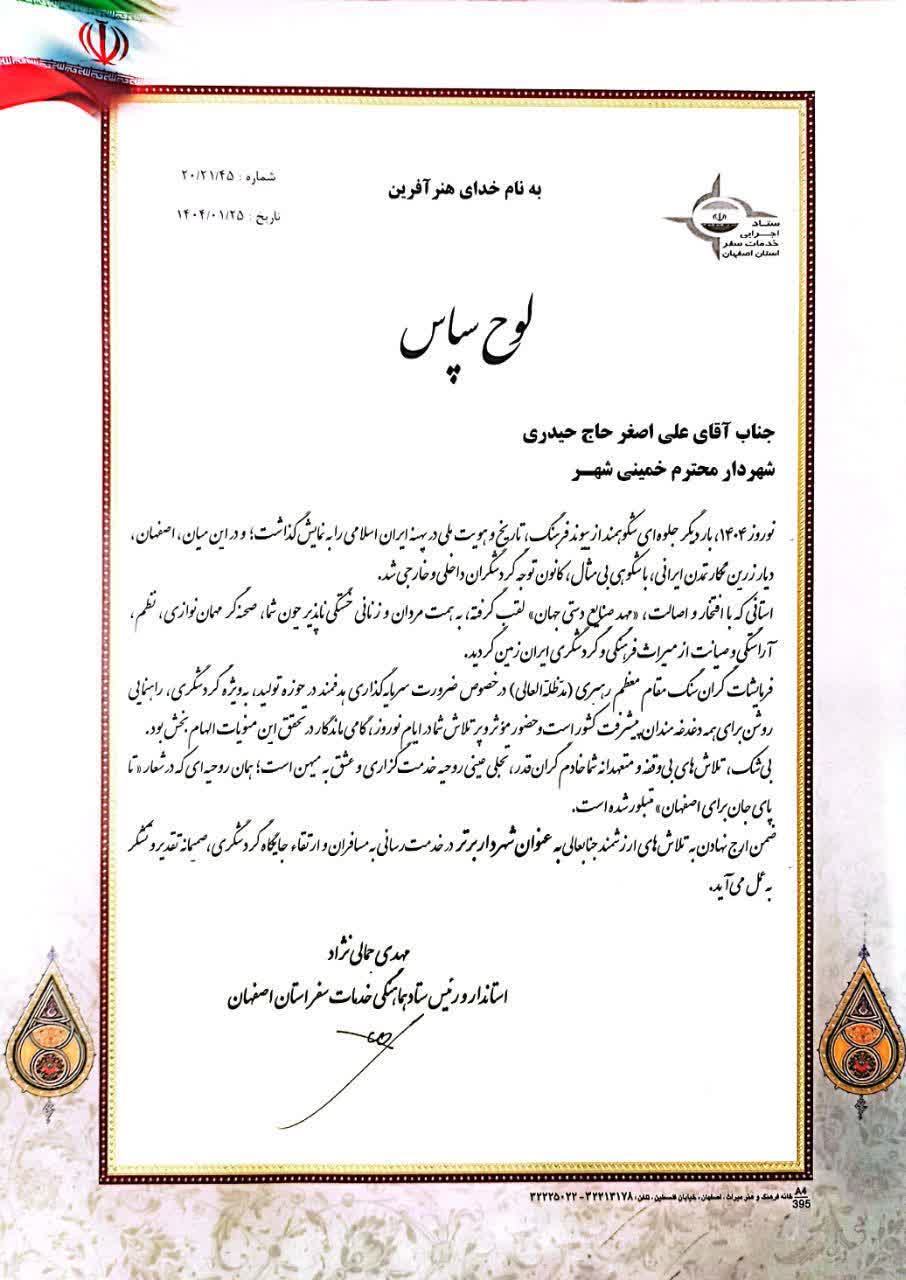 به نام خدای هنرآفرین
شماره : ۲۰/۲۱/۴۵
تاریخ : ۱۴۰۴/۰۱/۲۵
ستاد
اجرایی
خدمات سفر
استان اصفهان
لوح سپاس
جناب آقای علی اصغر حاج حیدری
شهردار محترم خمینی شهــر
نوروز ۱۴۰۴، بار دیگر جلوه‌ای شکوهمند از پیوند فرهنگ، تاریخ و هویت ملی در پهنه ایران اسلامی را به نمایش گذاشت؛ و در این میان، اصفهان،
دیار زرین نگار تمدن ایرانی، با شکوهی بی مثال، کانون توجه گردشگران داخلی و خارجی شد.
استانی که با افتخار و اصالت، «مهد صنایع دستی جهان» لقب گرفته، به همت مردان و زنانی خستگی ناپذیر چون شما، صحنه گر مهمان نوازی، نظم،
آراستگی و صیانت از میراث فرهنگی و گردشگری ایران زمین گردید.
فرمایشات گران سنگ مقام معظم رهبری (مدظله العالی) در خصوص ضرورت سرمایه گذاری هدفمند در حوزه تولید، به ویژه گردشگری، راهنمایی
روشن برای همه دغدغه مندان پیشرفت کشور است و حضور مؤثر و پر تلاش شما در ایام نوروز، گامی ماندگار در تحقق این منویات الهام بخش بود.
بی شک، تلاش های بی وقفه و متعهدانه شما خادم گران قدر، تجلی عینی روحیه خدمت گزاری و عشق به میهن است؛ همان روحیه ای که در شعار «تا
پای جان برای اصفهان» متبلور شده است.
ضمن ارج نهادن به تلاش های ارزشمند جنابعالی به عنوان شهردار برتر در خدمت رسانی به مسافران و ارتقاء جایگاه گردشگری، صمیمانه تقدیر و تشکر
به عمل می آید.
مهدی جمالی نژاد
استاندار و رئیس ستاد هماهنگی خدمات سفر استان اصفهان
A4
395
خانه فرهنگ و هنر میراث، اصفهان، خیابان فلسطین، تلفن: ۳۲۲۱۳۱۷۸-۳۲۲۲۵۰۲۲